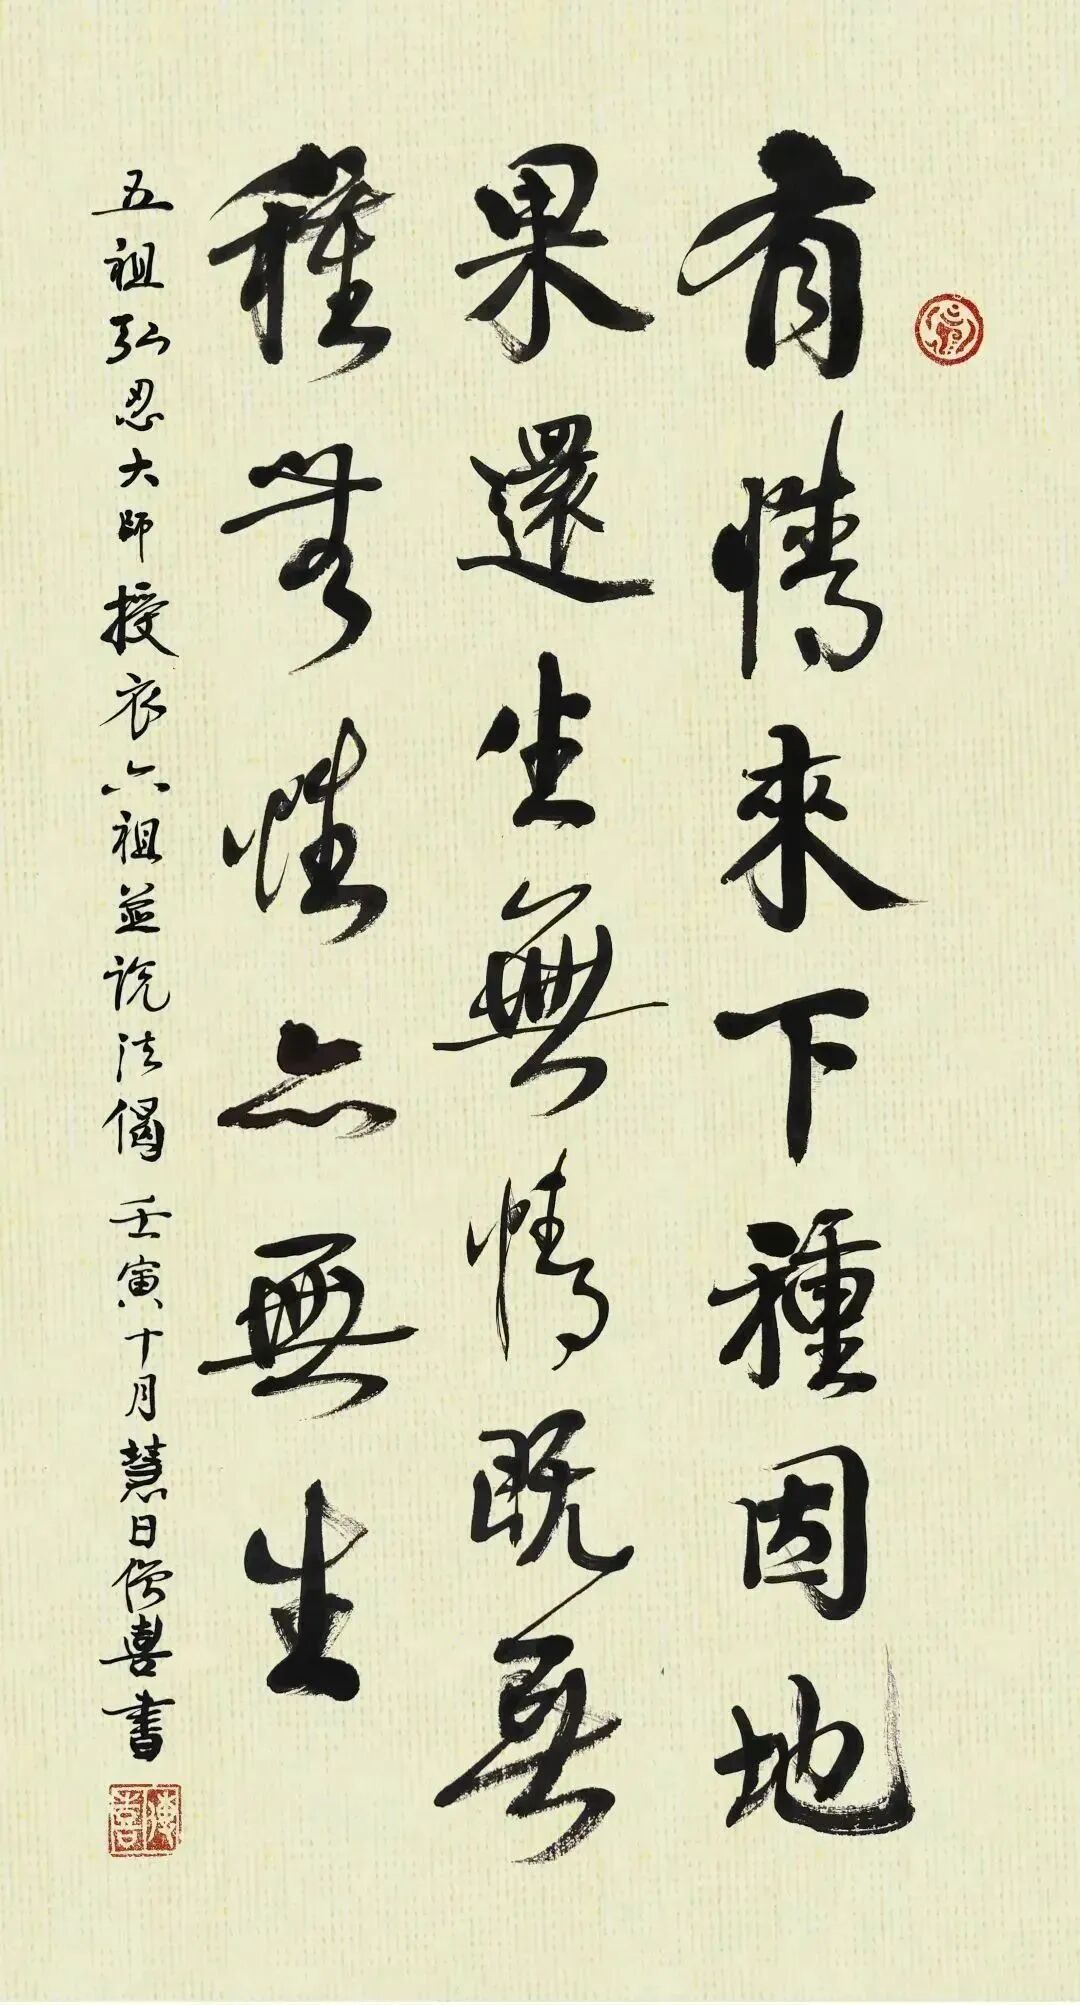 有情來下種因地
果還生無情既無
種無性亦無生
五祖弘忍大師授衣六祖並説法偈 壬寅十月慧日僧喜書